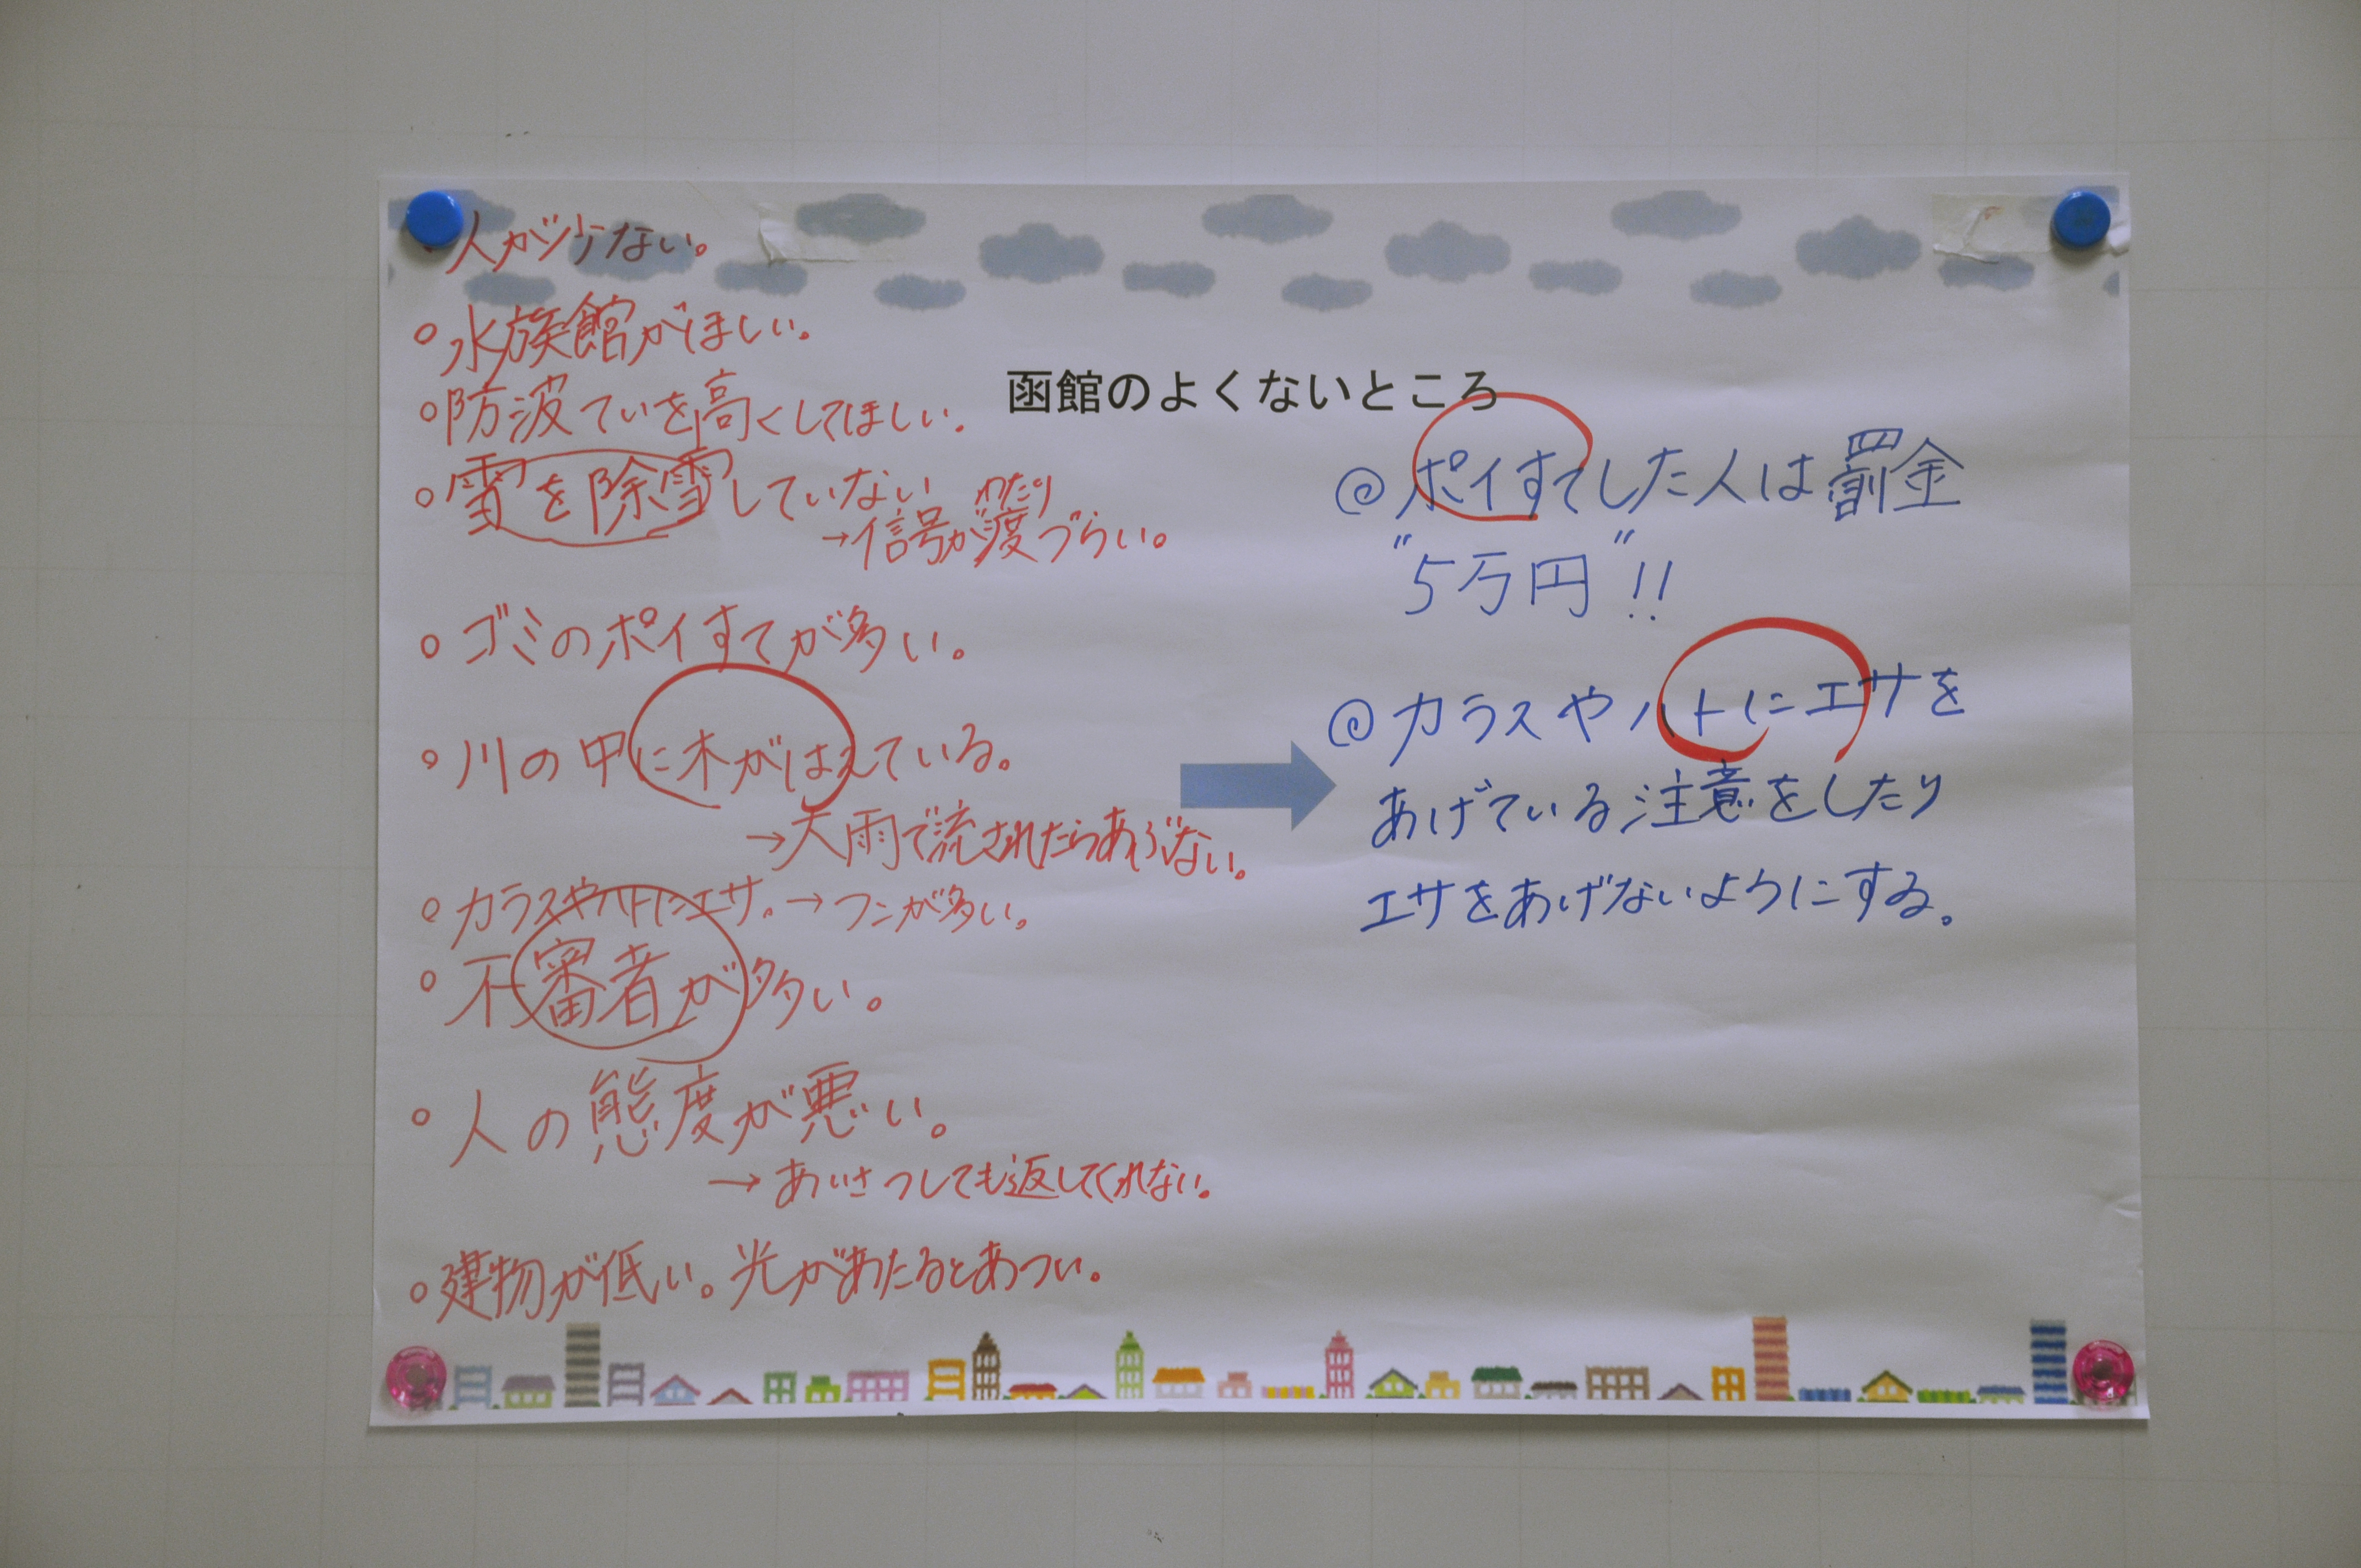 ・人が少ない。
○水族館がほしい。
函館のよくないところ
○防波ていを高くしてほしい。
○雪を除雪していない
→信号が渡づらい。
わたり
○ゴミのポイすてが多い。
○川の中に木がはえている。
→大雨で流されたらあぶない。
○カラスやハトにエサ。→フンが多い。
○不審者が多い。
○人の態度が悪い。
→あいさつしても返してくれない。
○建物が低い。光があたるとあつい。
@ポイすてした人は罰金
"5万円"!!
@カラスやハトにエサを
あげている注意をしたり
エサをあげないようにする。